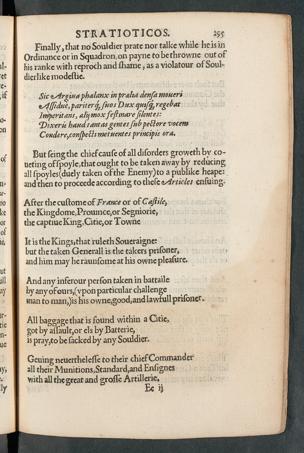 STRATIOTICOS. 295
Finally, that no Souldier prate nor talke while he is in
Ordinance or in Squadron, on payne to be throwne out of
his ranke with reproch and shame, as a violatour of Soul-
dierlike modestie.
Sic Argina phalanx in pralia densa moueri
Assidue, pariterq́; suos Dux quisq́; regebat
Imperitans, aliq́; mox festinare silentes:
Dixeris haud tantas gentes sub pectore vocem
Condere, conspecti metuentes principis ora.
But seing the chief cause of all disorders groweth by co-
ueting of spoyle, that ought to be taken away by reducing
all spoyles (duely taken of the Enemy) to a publike heape:
and then to proceede according to these Articles ensuing.
After the custome of France or of Castile,
the Kingdome, Prouince, or Segniorie,
the captiue King, Citie, or Towne
It is the Kings, that ruleth Soueraigne
but the taken Generall is the takers prisoner,
and him may he raunsome at his owne pleasure.
And any inferour person taken in battaile
by any of ours, (vpon particular challenge
man to man,) is his owne, good, and lawfull prisoner.
All baggage that is found within a Citie,
got by assault, or els by Batterie,
is pray, to be sacked by any Souldier.
Geuing neuerthelesse to their chief Commander
all their Munitions, Standard, and Ensignes
with all the great and grosse Artillerie,
Ee ij